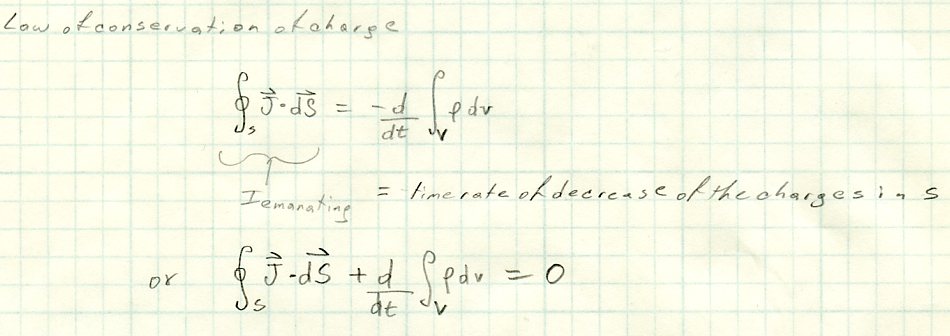 Law of conservation of charge
∮ₛ J⃗·dS⃗ = -d/dt ∫ᵥ ρ dv
I emanating = time rate of decrease of the charges in S
or ∮ₛ J⃗·dS⃗ + d/dt ∫ᵥ ρ dv = 0